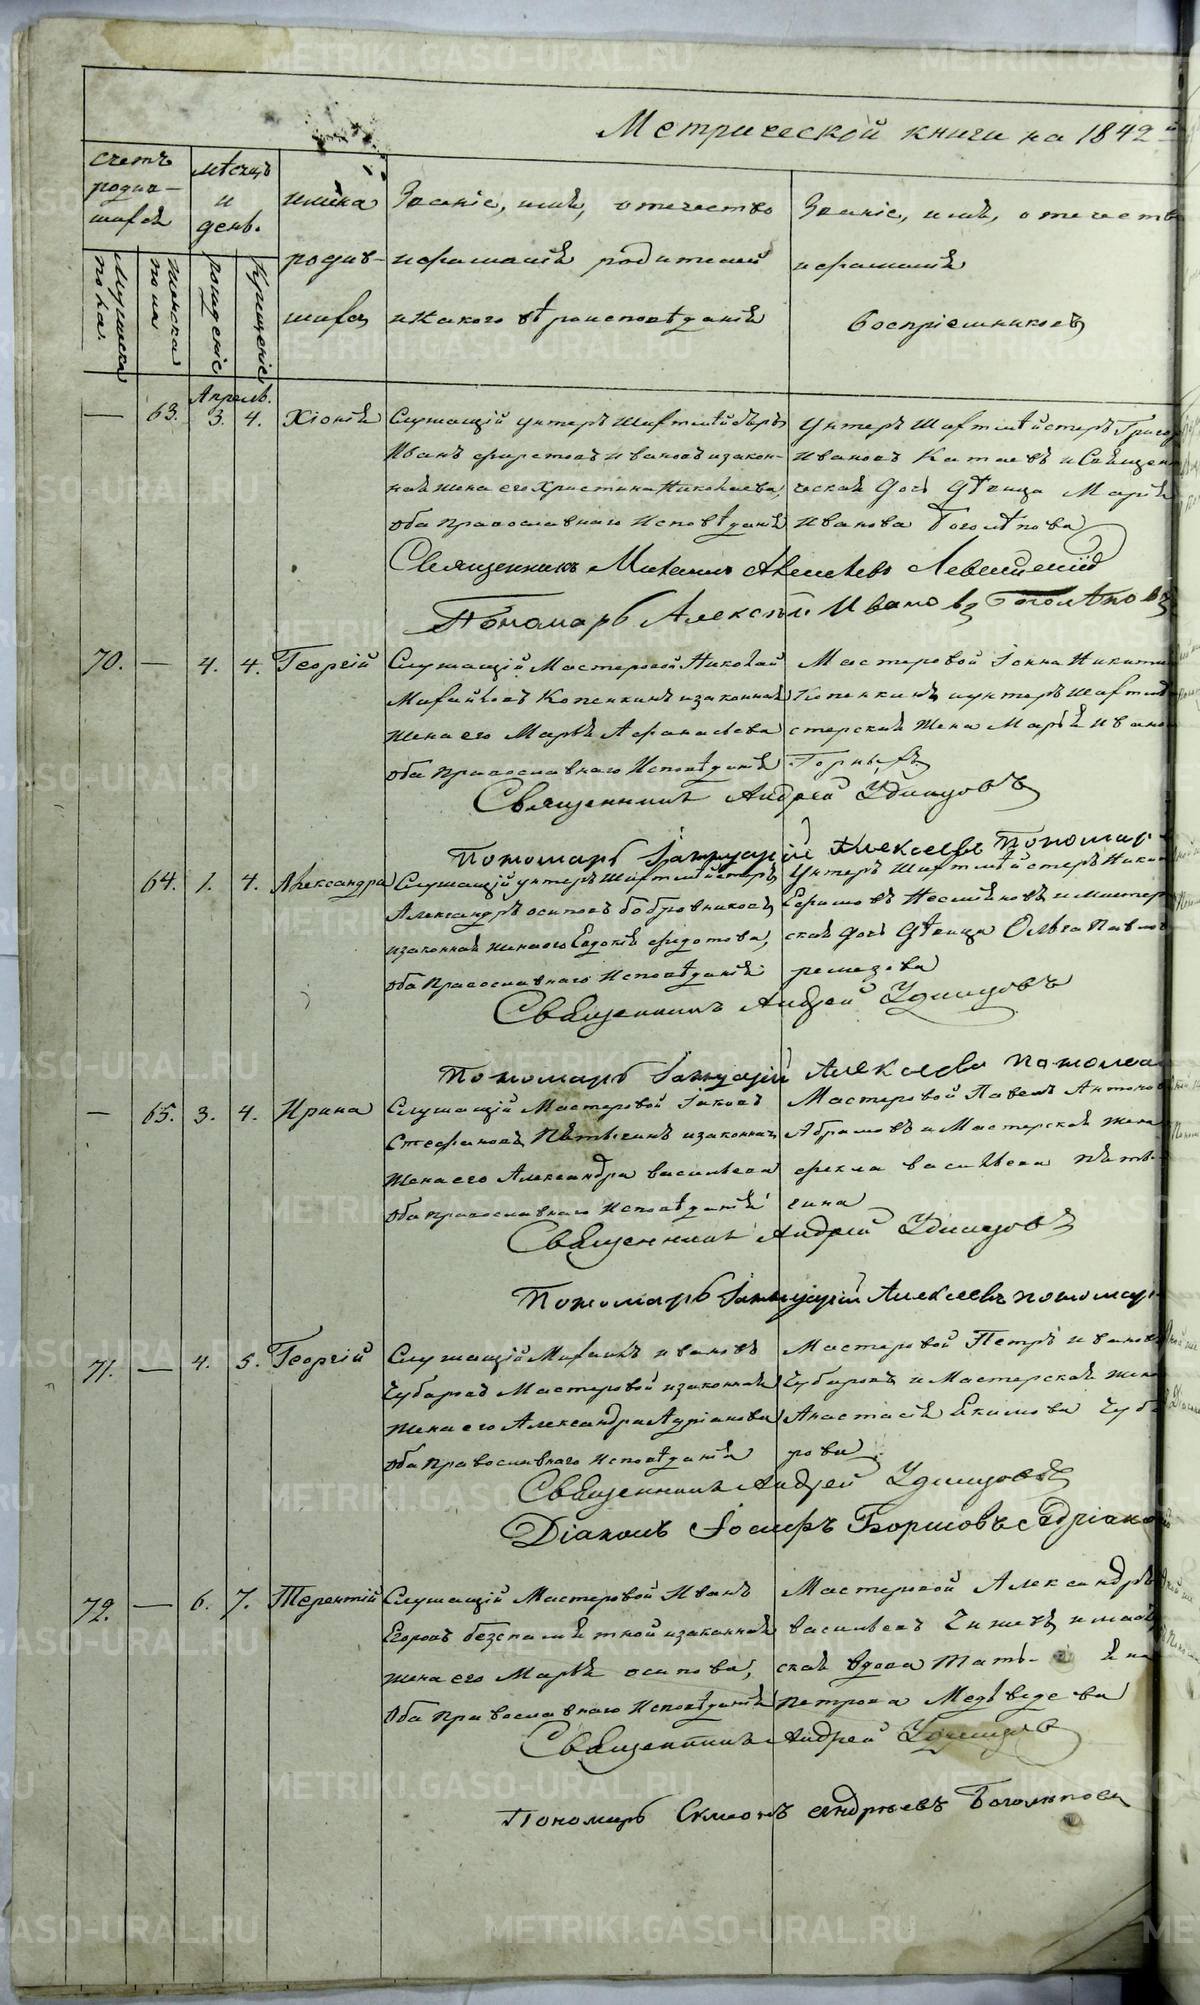 Метрической книги на 1842 й
счетъ
родив-
шихся
мѣсяцъ
и
день.
имена
родив-
шихся
Званіе, имя, отечество
и фамилія родителей
и какого вѣроисповѣданія
Званіе, имя, отечеств
и фамилія
воспріемниковъ
Мужеска
пола.
женска
пола
рожденіе
крещеніе
Апрель.
— 63. 3. 4. Хіонія
Служащій унтеръ шихтмѣйстеръ
Иванъ Ивановъ и закон-
ная жена его Христина Николаева,
оба Православнаго Исповѣданія
Унтеръ Шихтмѣйстеръ Григор
Ивановъ Катаевъ и Священ
ческая дочь дѣвица Марія
Иванова Боголѣпова
Священникъ Михаилъ Алексѣевъ Левицкій
Пономарь Алексѣй Ивановъ Боголѣповъ
70. — 4. 4. Георгій
Служащій Мастеровой Николай
Михайловъ Копенкинъ и законная
жена его Марья Афанасьева
оба Православнаго Исповѣданія
Мастеровой Іоанна Никити
Копенкинъ и унтеръ шихтмѣ
стерская жена Марья Ивано
Горныхъ
Священникъ Андрей Удинцовъ
Пономарь Іаннуарій Алексеевъ Пономар
64. 1. 4. Александра
Служащій унтеръ шихтмѣйстеръ
Александръ Осиповъ Бобровниковъ
и законная жена его Евдокія Федотова,
оба Православнаго Исповѣданія
Унтеръ Шихтмѣйстеръ Ники
ская дочь дѣвица Ольга Павлов
ремезова
Священникъ Андрей Удинцовъ
Пономарь Іаннуарій Алексеевъ Пономар
— 65. 3. 4. Ирина
Служащій Мастеровой Іаковъ
Стефановъ Пѣтягинъ и законная
жена его Александра Васильева
оба Православнаго Исповѣданія
Мастеровой Павелъ Антонов
Абрамовъ и Мастерская жена
Фекла Васильева Пѣтя-
гина
Священникъ Андрей Удинцовъ
Пономарь Іаннуарій Алексеевъ Пономар
71. — 4. 5. Георгій
Служащій Михаилъ Ивановъ
Чубаровъ Мастеровой и законная
жена его Александра Адріанова
оба Православнаго Исповѣданія
Мастеровой Петръ Иванов
Чубаровъ и Мастерская жена
Анастасія Екимова Чуба
рова
Священникъ Андрей Удинцовъ
Діаконъ Іосифъ Борисовъ Адріано
72. — 6. 7. Терентій
Служащій Мастеровой Иванъ
Егоровъ Безпамятной и законная
жена его Марья Осипова,
Оба Православнаго Исповѣданія
Мастеровой Александръ
Васильевъ Чижовъ и мас
ская вдова
Петрова Медьведева
Священникъ Андрей Удинцов
Пономарь Симеонъ Андреевъ Боголѣпов
METRIKI.GASO-URAL.RU